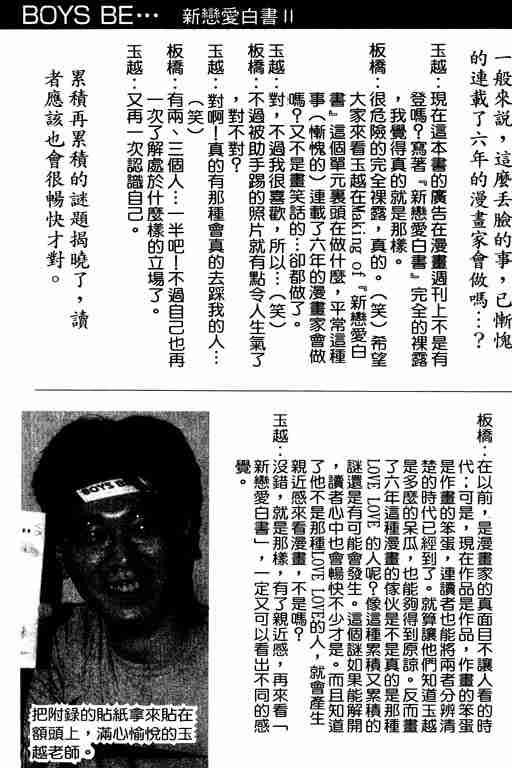 BOYS BE… 新戀愛白書II
一般來說，這麼丟臉的事，已慚愧
的連載了六年的漫畫家會做嗎…？
玉越：現在這本書的廣告在漫畫週刊上不是有
登嗎？寫著『新戀愛白書』完全的裸露
，我覺得真的就是那樣。
板橋：很危險的完全裸露，真的。（笑）希望
大家來看玉越在Making of『新戀愛白
書』這個單元裏頭在做什麼，平常這種
事（慚愧的）連載了六年的漫畫家會做
嗎？又不是畫笑話的…卻都做了。
玉越：對，不過我很喜歡，所以…（笑）
板橋：不過被助手踢的照片就有點令人生氣了
，對不對？
玉越：對啊！真的有那種會真的去踩我的人…
（笑）
板橋：有兩、三個人…一半吧！不過自己也再
一次了解處於什麼樣的立場了。
玉越：又再一次認識自己。
累積再累積的謎題揭曉了，讀
者應該也會很暢快才對。
板橋：在以前，是漫畫家的真面目不讓人看的時
代；可是，現在作品是作品，作畫的笨蛋
是作畫的笨蛋，連讀者也能將兩者分辨清
楚的時代已經到了。就算讓他們知道玉越
是多麼的呆瓜，也能夠得到原諒。反而畫
了六年這種漫畫的傢伙是不是真的是那種
LOVE LOVE 的人呢？像這種累積又累積的
謎還是有可能會發生。這個謎如果能解開
，讀者心中也會暢快不少才是。而且知道
了他不是那種LOVE LOVE的人，就會產生
親近感來看漫畫，不是嗎？
玉越：沒錯，就是那樣，有了親近感，再來看「
新戀愛白書」，一定又可以看出不同的感
覺。
BOYS BE
把附錄的貼紙拿來貼在
額頭上，滿心愉悅的玉
越老師。